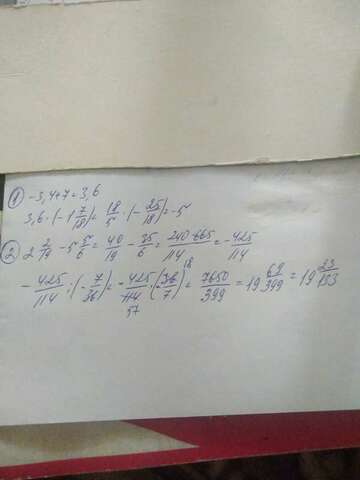 ① -3,4+7=3,6
3,6·(-1 7/18)=18/5·(-25/18)=-5
② 2 2/19-5 5/6=40/19-35/6=240-665/114=-425/114
-425/114:(-7/36)=-425/114 57·(-36/7)18=7650/399=19 69/399=19 23/133